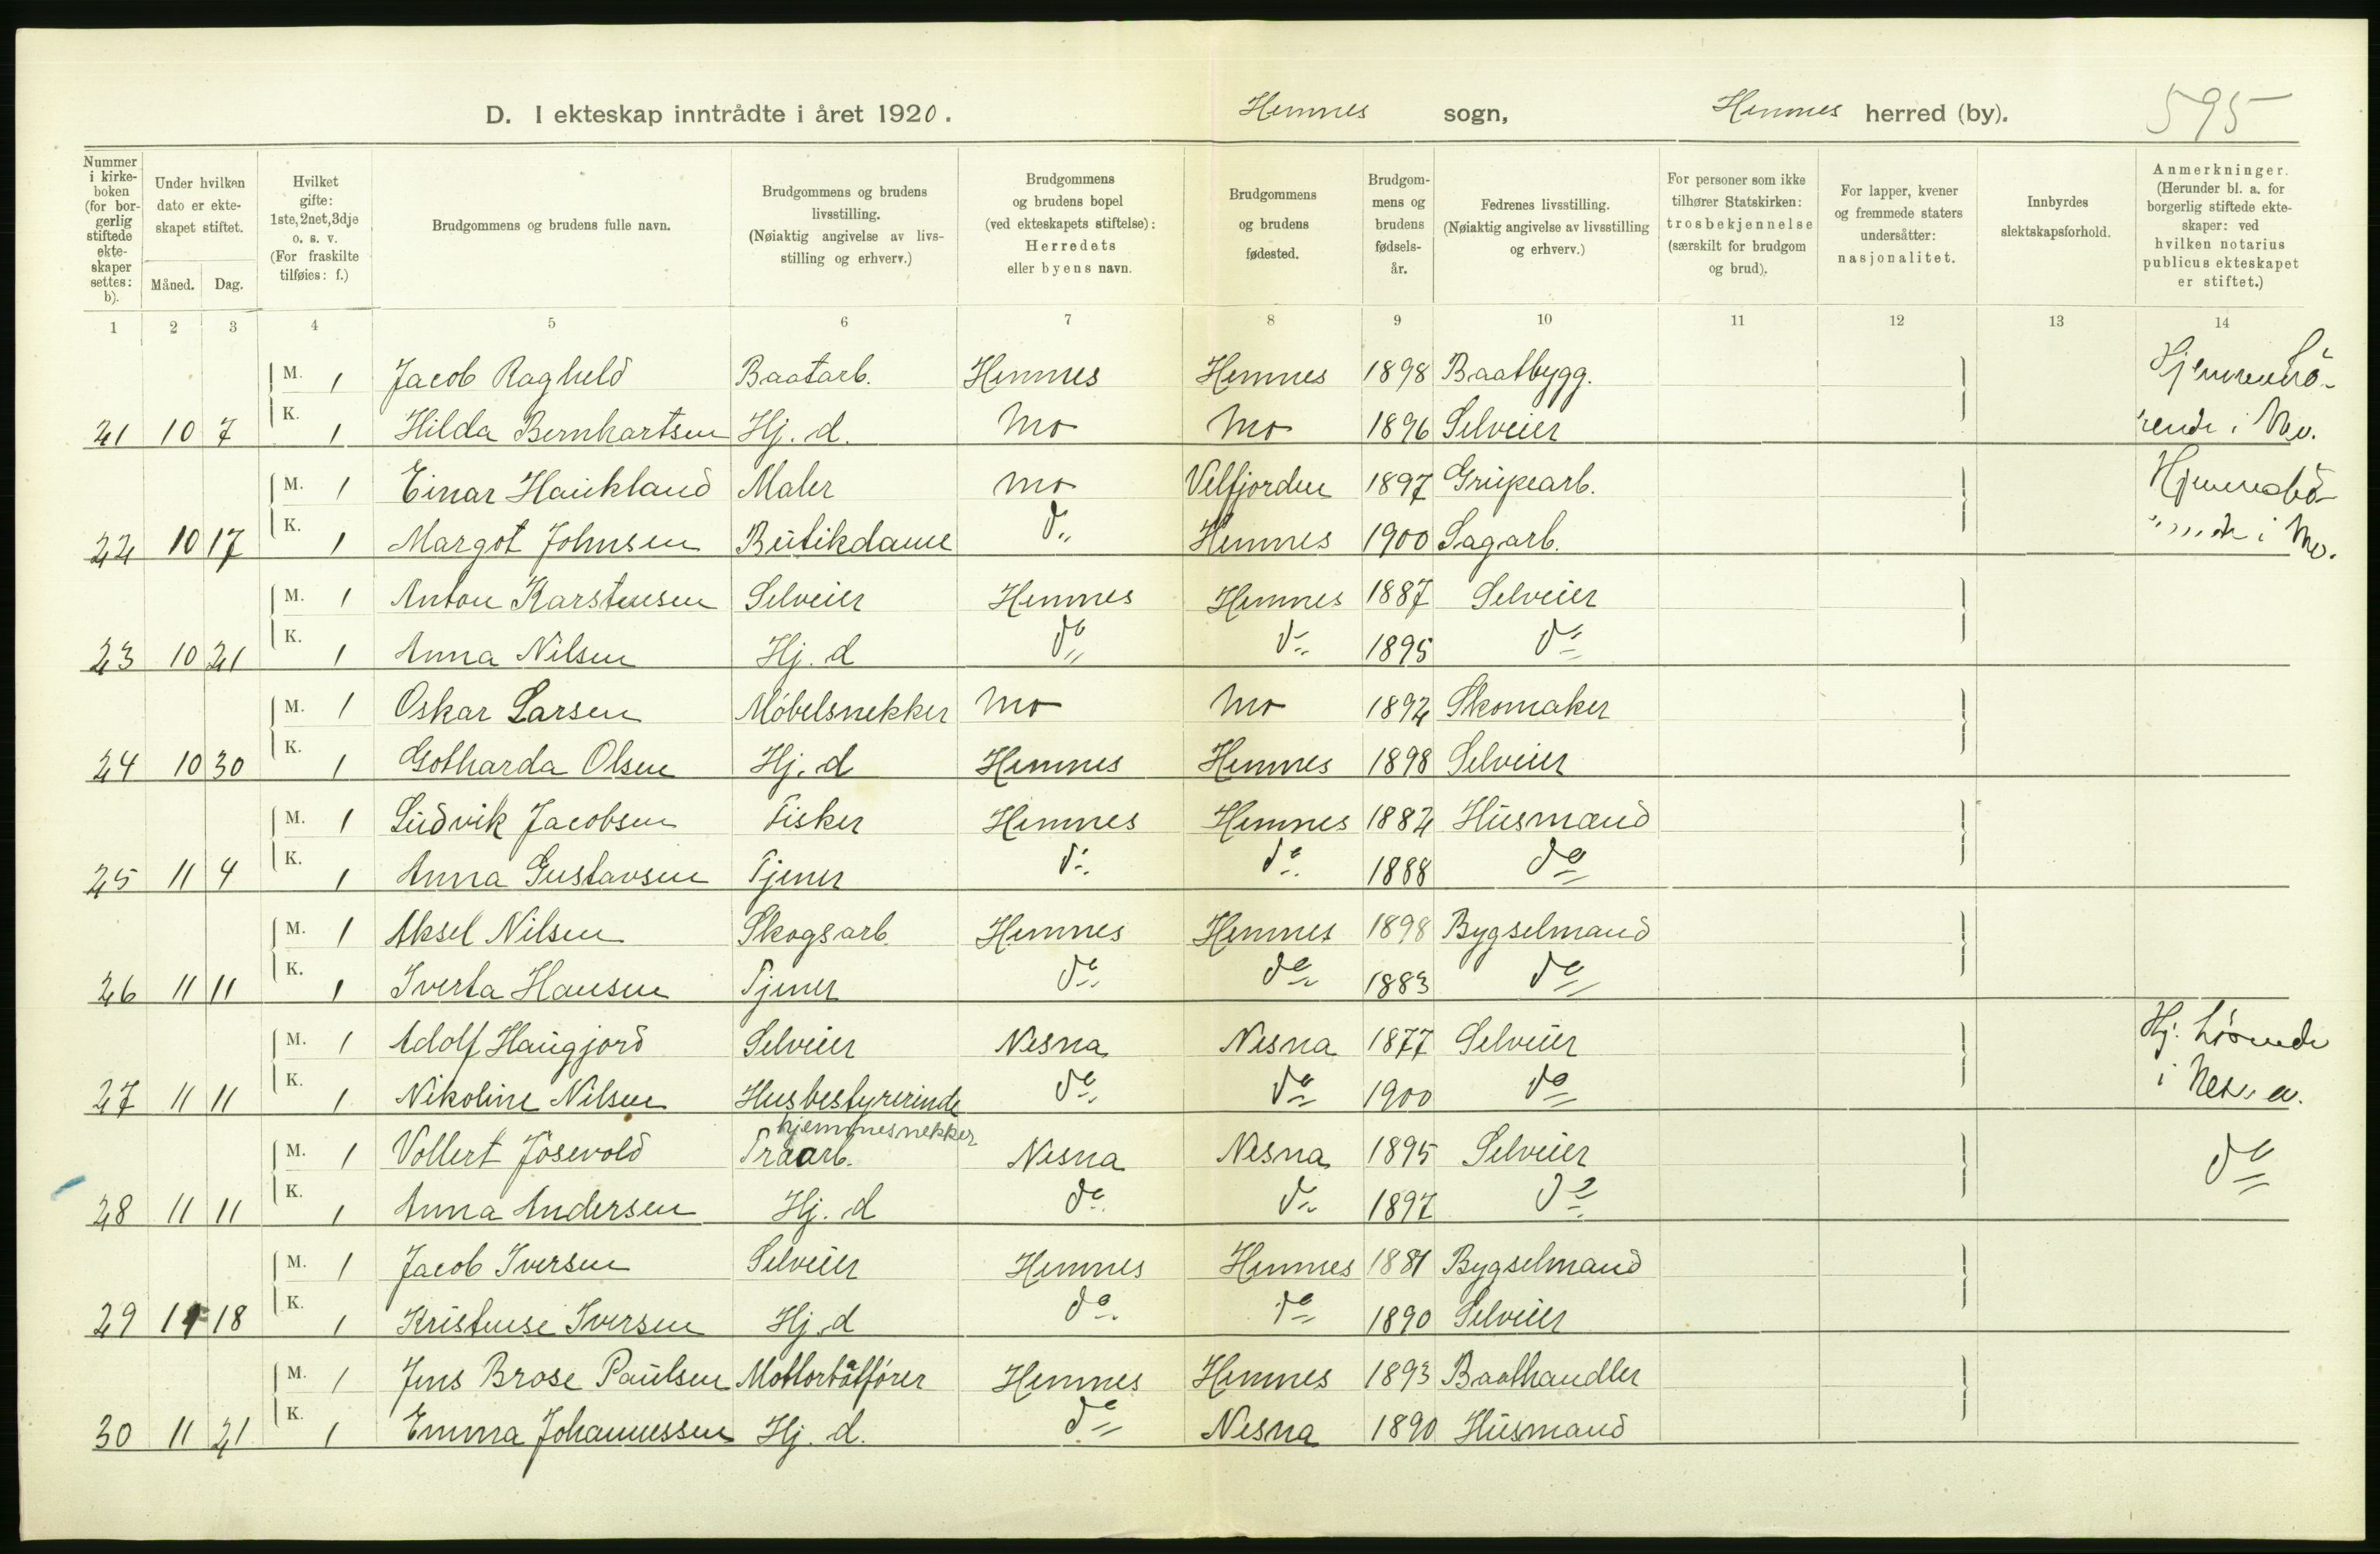 D. I ekteskap inntrådte i året 1920. Hemnes sogn, Hemnes herred (by). 595
Nummer i kirkeboken (for borgerlig stiftede ekteskaper settes: b).
Under hvilken dato er ekteskapet stiftet.
Måned. Dag.
Hvilket gifte: 1ste, 2net, 3dje o. s. v. (For fraskilte tilføies: f.)
Brudgommens og brudens fulle navn.
Brudgommens og brudens livsstilling. (Nøiaktig angivelse av livsstilling og erhverv.)
Brudgommens og brudens bopel (ved ekteskapets stiftelse): Herredets eller byens navn.
Brudgommens og brudens fødested.
Brudgommens og brudens fødselsår.
Fedrenes livsstilling. (Nøiaktig angivelse av livsstilling og erhverv.)
For personer som ikke tilhører Statskirken: trosbekjennelse (særskilt for brudgom og brud).
For lapper, kvener og fremmede staters undersåtter: nasjonalitet.
Innbyrdes slektskapsforhold.
Anmerkninger. (Herunder bl. a. for borgerlig stiftede ekteskaper: ved hvilken notarius publicus ekteskapet er stiftet.)
1 2 3 4 5 6 7 8 9 10 11 12 13 14
M. 1 Jacob Ragheld Baatarb. Hemnes Hemnes 1898 Baatbygg. Hjemmehö-
21 10 7 K. 1 Hilda Bernhartsen Hj. d. Mo Mo 1896 Selveier rende i Mo.
M. 1 Einar Haukland Maler Mo Velfjorden 1897 Grupearb. Hjemmehö-
22 10 17 K. 1 Margot Johnsen Butikdame do Hemnes 1900 Sagarb. rende i Mo.
M. 1 Anton Karstensen Selveier Hemnes Hemnes 1887 Selveier
23 10 21 K. 1 Anna Nilsen Hj. d do do 1895 do
M. 1 Oskar Larsen Möbelsnekker Mo Mo 1892 Skomaker
24 10 30 K. 1 Gotharda Olsen Hj. d Hemnes Hemnes 1898 Selveier
M. 1 Ludvik Jacobsen Fisker Hemnes Hemnes 1882 Husmand
25 11 4 K. 1 Anna Gustavsen Tjener do do 1888 do
M. 1 Aksel Nilsen Skogsarb. Hemnes Hemnes 1898 Bygselmand
26 11 11 K. 1 Iverta Hansen Tjener do do 1883 do
M. 1 Adolf Haugjord Selveier Nesna Nesna 1877 Selveier Hj. hörende
27 11 11 K. 1 Nikoline Nilsen Husbestyrerinde do do 1900 do i Nesna.
hjemmesnekker
M. 1 Vollert Jösevold Träarb. Nesna Nesna 1895 Selveier do
28 11 11 K. 1 Anna Andersen Hj. d do do 1897 do
M. 1 Jacob Iversen Selveier Hemnes Hemnes 1881 Bygselmand
29 11 18 K. 1 Kristense Iversen Hj. d do do 1890 Selveier
M. 1 Jens Brose Paulsen Mottorbåtförer Hemnes Hemnes 1893 Baathandler
30 11 21 K. 1 Emma Johannessen Hj. d. do Nesna 1890 Husmand